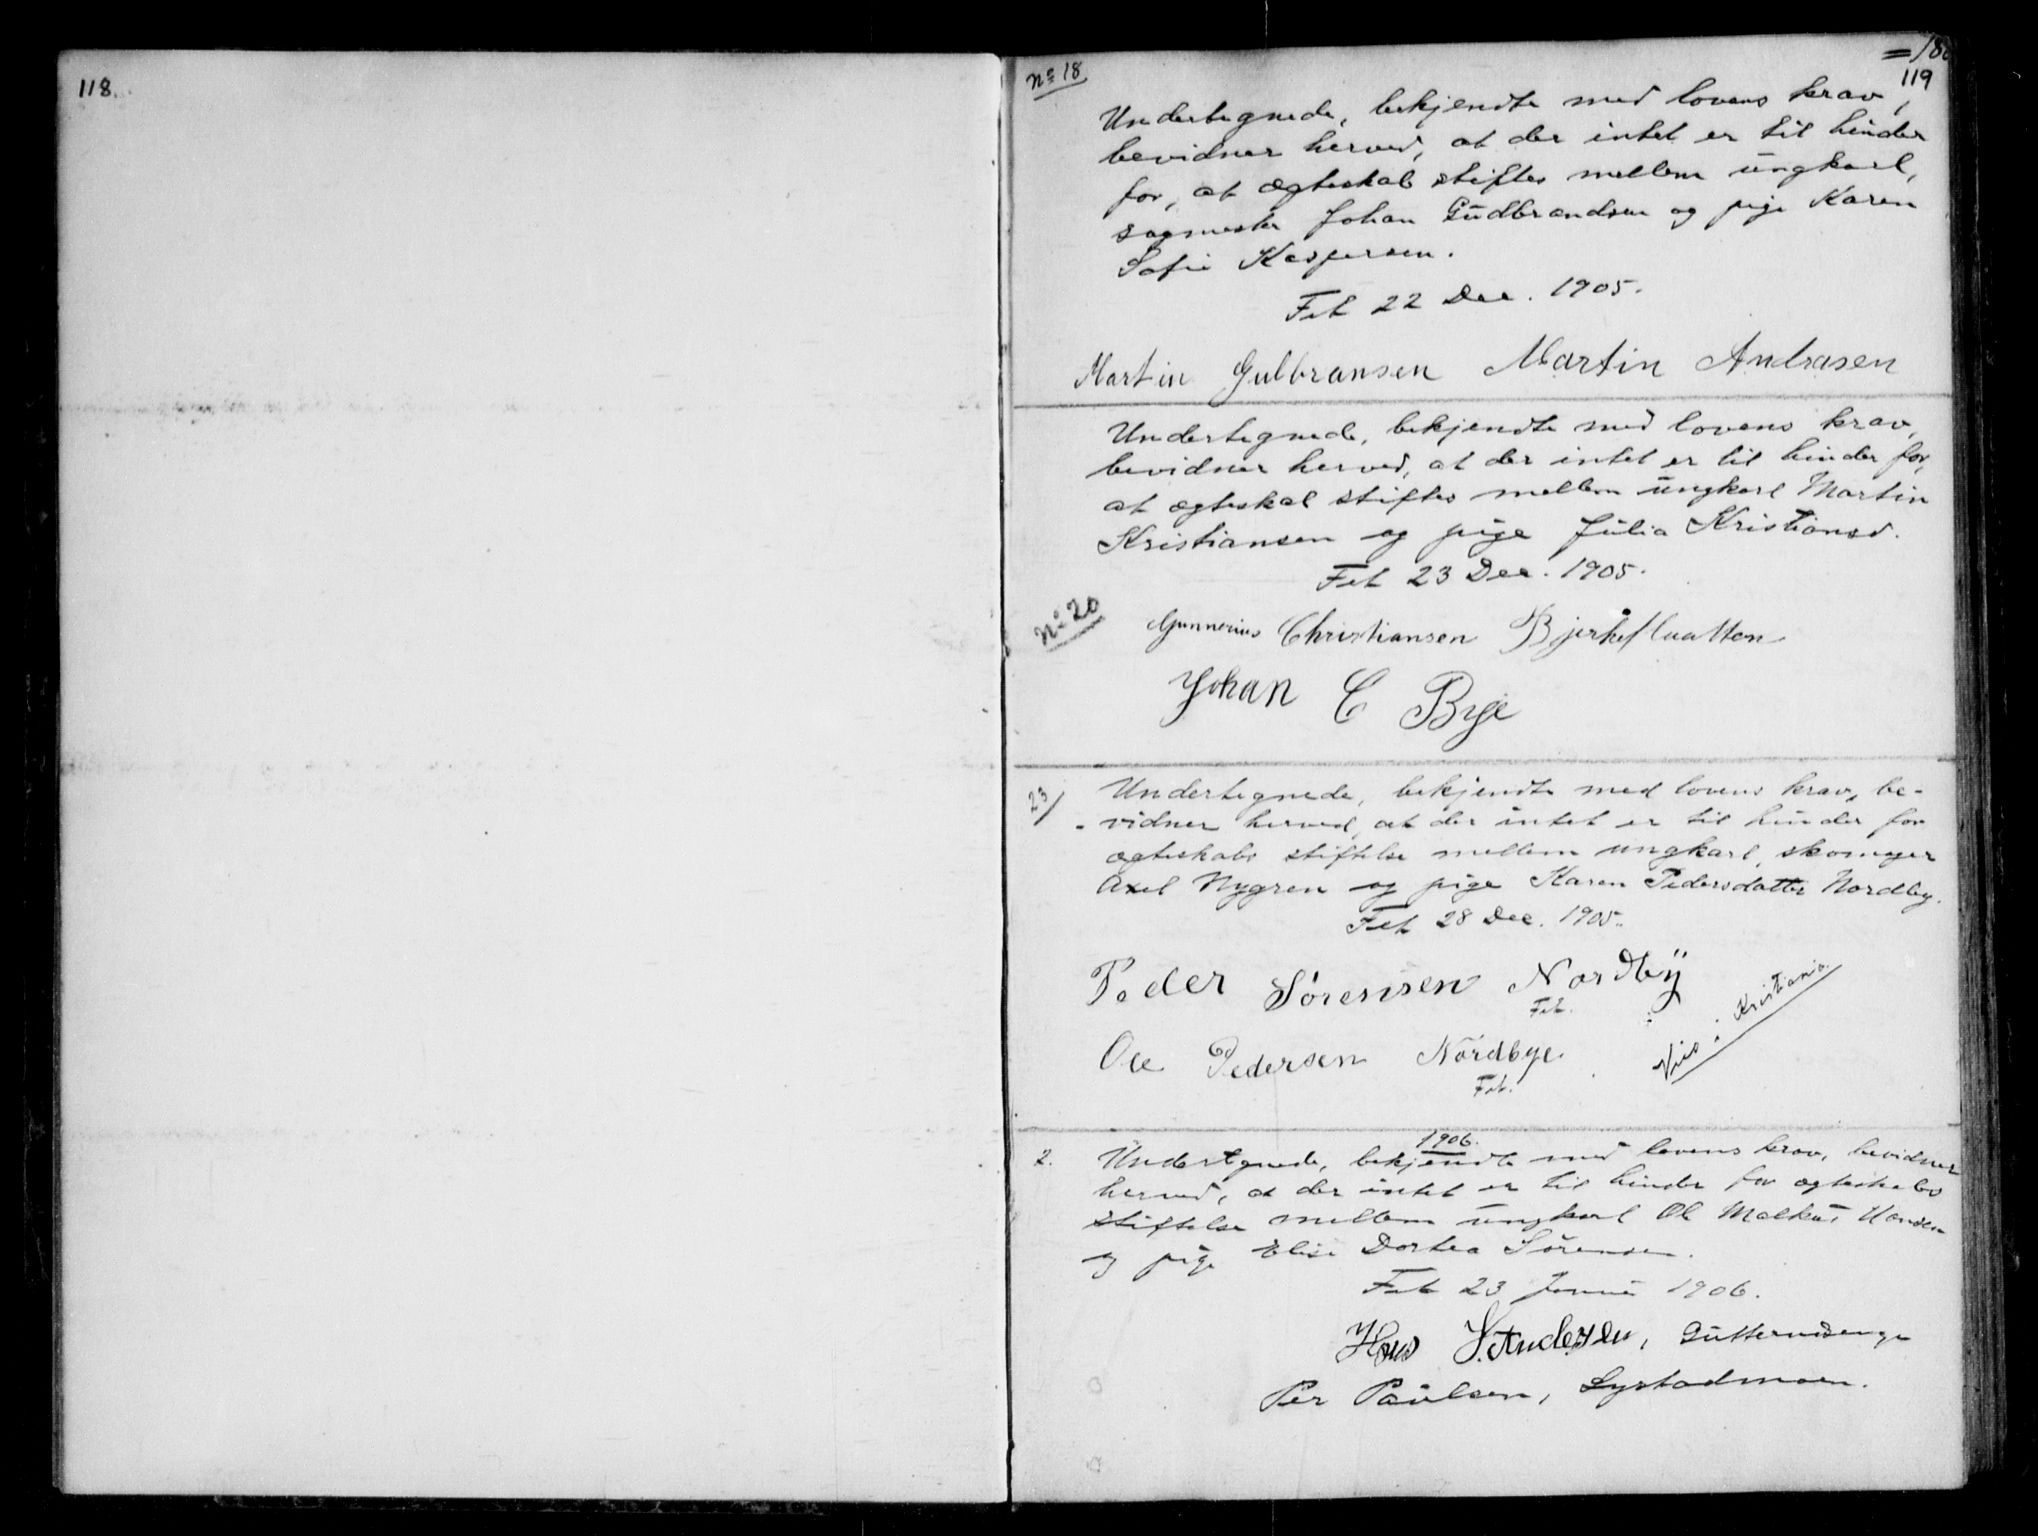 118.
= 18
119
No 18
Undertegnede, bekjendte med lovens krav,
bevidner herved, at der intet er til hinder
for, at ægteskab stiftes mellem ungkarl,
sagmester Johan Gudbrandsen og pige Karen
Sofie Kaspersen.
Fet 22 Dec. 1905.
Martin Gulbransen Martin Andrasen
Undertegnede, bekjendte med lovens krav,
bevidner herved, at der intet er til hinder for,
at ægteskab stiftes mellem ungkarl Martin
Kristiansen og pige Julia Kristiansd.
Fet 23 Dec. 1905.
No 20
Gunnerius Christiansen Bjerkeflaatten
Johan C Bye
23/
Undertegnede, bekjendte med lovens krav, be-
- vidner herved, at der intet er til hinder for
ægteskabs stiftelse mellem ungkarl, skomager
Axel Nygren og pige Karen Pedersdatter Nordby.
Fet 28 Dec. 1905.
Peder Sørensen Nordby
Fet.
Viet i Kristiania.
Ole Pedersen Nordbye.
Fet.
1906.
2.
Undertgnede, bekjendte med lovens krav, bevidner
herved, at der intet er til hinder for ægteskabs
stiftelse mellem ungkarl Ole Melkior Hansen
og pige Elise Dortea Sørensen.
Fet 23 Januar 1906.
Hans H. Andersen, Guttersrudenge
Per Paulsen, Lystadmoen.